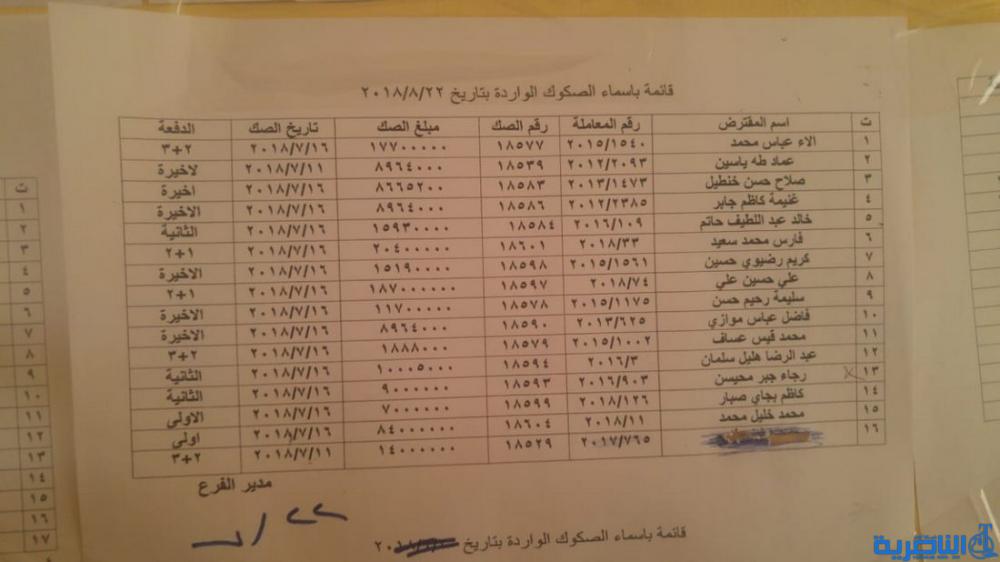 قائمة باسماء الصكوك الواردة بتاريخ ٢٠١٨/٨/٢٢
ت اسم المقترض رقم المعاملة رقم الصك مبلغ الصك تاريخ الصك الدفعة
١ الاء عباس محمد ٢٠١٥/١٥٤٠ ١٨٥٧٧ ١٧٧٠٠٠٠٠ ٢٠١٨/٧/١٦ ٣+٢
٢ عماد طه ياسين ٢٠١٢/٢٠٩٣ ١٨٥٣٩ ٨٩٦٤٠٠٠ ٢٠١٨/٧/١١ لاخيرة
٣ صلاح حسن خنطيل ٢٠١٣/١٤٧٣ ١٨٥٨٣ ٨٦٦٥٢٠٠ ٢٠١٨/٧/١٦ اخيرة
٤ غنيمة كاظم جابر ٢٠١٢/٢٣٨٥ ١٨٥٨٦ ٨٩٦٤٠٠٠ ٢٠١٨/٧/١٦ الاخيرة
٥ خالد عبد اللطيف حاتم ٢٠١٦/١٠٩ ١٨٥٨٤ ١٥٩٣٠٠٠٠ ٢٠١٨/٧/١٦ الثانية
٦ فارس محمد سعيد ٢٠١٨/٣٣ ١٨٦٠١ ٢٠٤٠٠٠٠٠ ٢٠١٨/٧/١٦ ٢+١
٧ كريم رضيوي حسين ٢٠١٥/١٥٦١ ١٨٥٩٨ ١٥١٩٠٠٠٠ ٢٠١٨/٧/١٦ الاخيرة
٨ علي حسين علي ٢٠١٨/٧٤ ١٨٥٩٧ ١٨٧٠٠٠٠٠ ٢٠١٨/٧/١٦ ٢+١
٩ سليمة رحيم حسن ٢٠١٥/١١٧٥ ١٨٥٧٨ ١١٧٠٠٠٠٠ ٢٠١٨/٧/١٦ الاخيرة
١٠ فاضل عباس موازي ٢٠١٣/٦٢٥ ١٨٥٩٠ ٨٩٦٤٠٠٠ ٢٠١٨/٧/١٦ الاخيرة
١١ محمد قيس عساف ٢٠١٥/١٠٠٢ ١٨٥٧٩ ١٨٨٨٠٠٠ ٢٠١٨/٧/١٦ ٣+٢
١٢ عبد الرضا هليل سلمان ٢٠١٦/٣ ١٨٥٩٤ ١٠٠٠٥٠٠٠ ٢٠١٨/٧/١٦ الثانية
١٣ رجاء جبر محيسن ٢٠١٦/٩٠٣ ١٨٥٩٣ ٩٠٠٠٠٠٠ ٢٠١٨/٧/١٦ الثانية
١٤ كاظم بجاي صبار ٢٠١٨/١٢٦ ١٨٥٩٩ ٧٠٠٠٠٠٠ ٢٠١٨/٧/١٦ الاولى
١٥ محمد خليل محمد ٢٠١٨/١١ ١٨٦٠٤ ٨٤٠٠٠٠٠ ٢٠١٨/٧/١٦ اولى
١٦ ٢٠١٧/٧٦٥ ١٨٥٢٩ ١٤٠٠٠٠٠٠ ٢٠١٨/٧/١١ ٣+٢
مدير الفرع
قائمة باسماء الصكوك الواردة بتاريخ
ت
١
٢
٣
٤
٥
٦
٧
٨
٩
١٠
١١
١٢
١٣
١٤
١٥
١٦
١٧
الناصرية